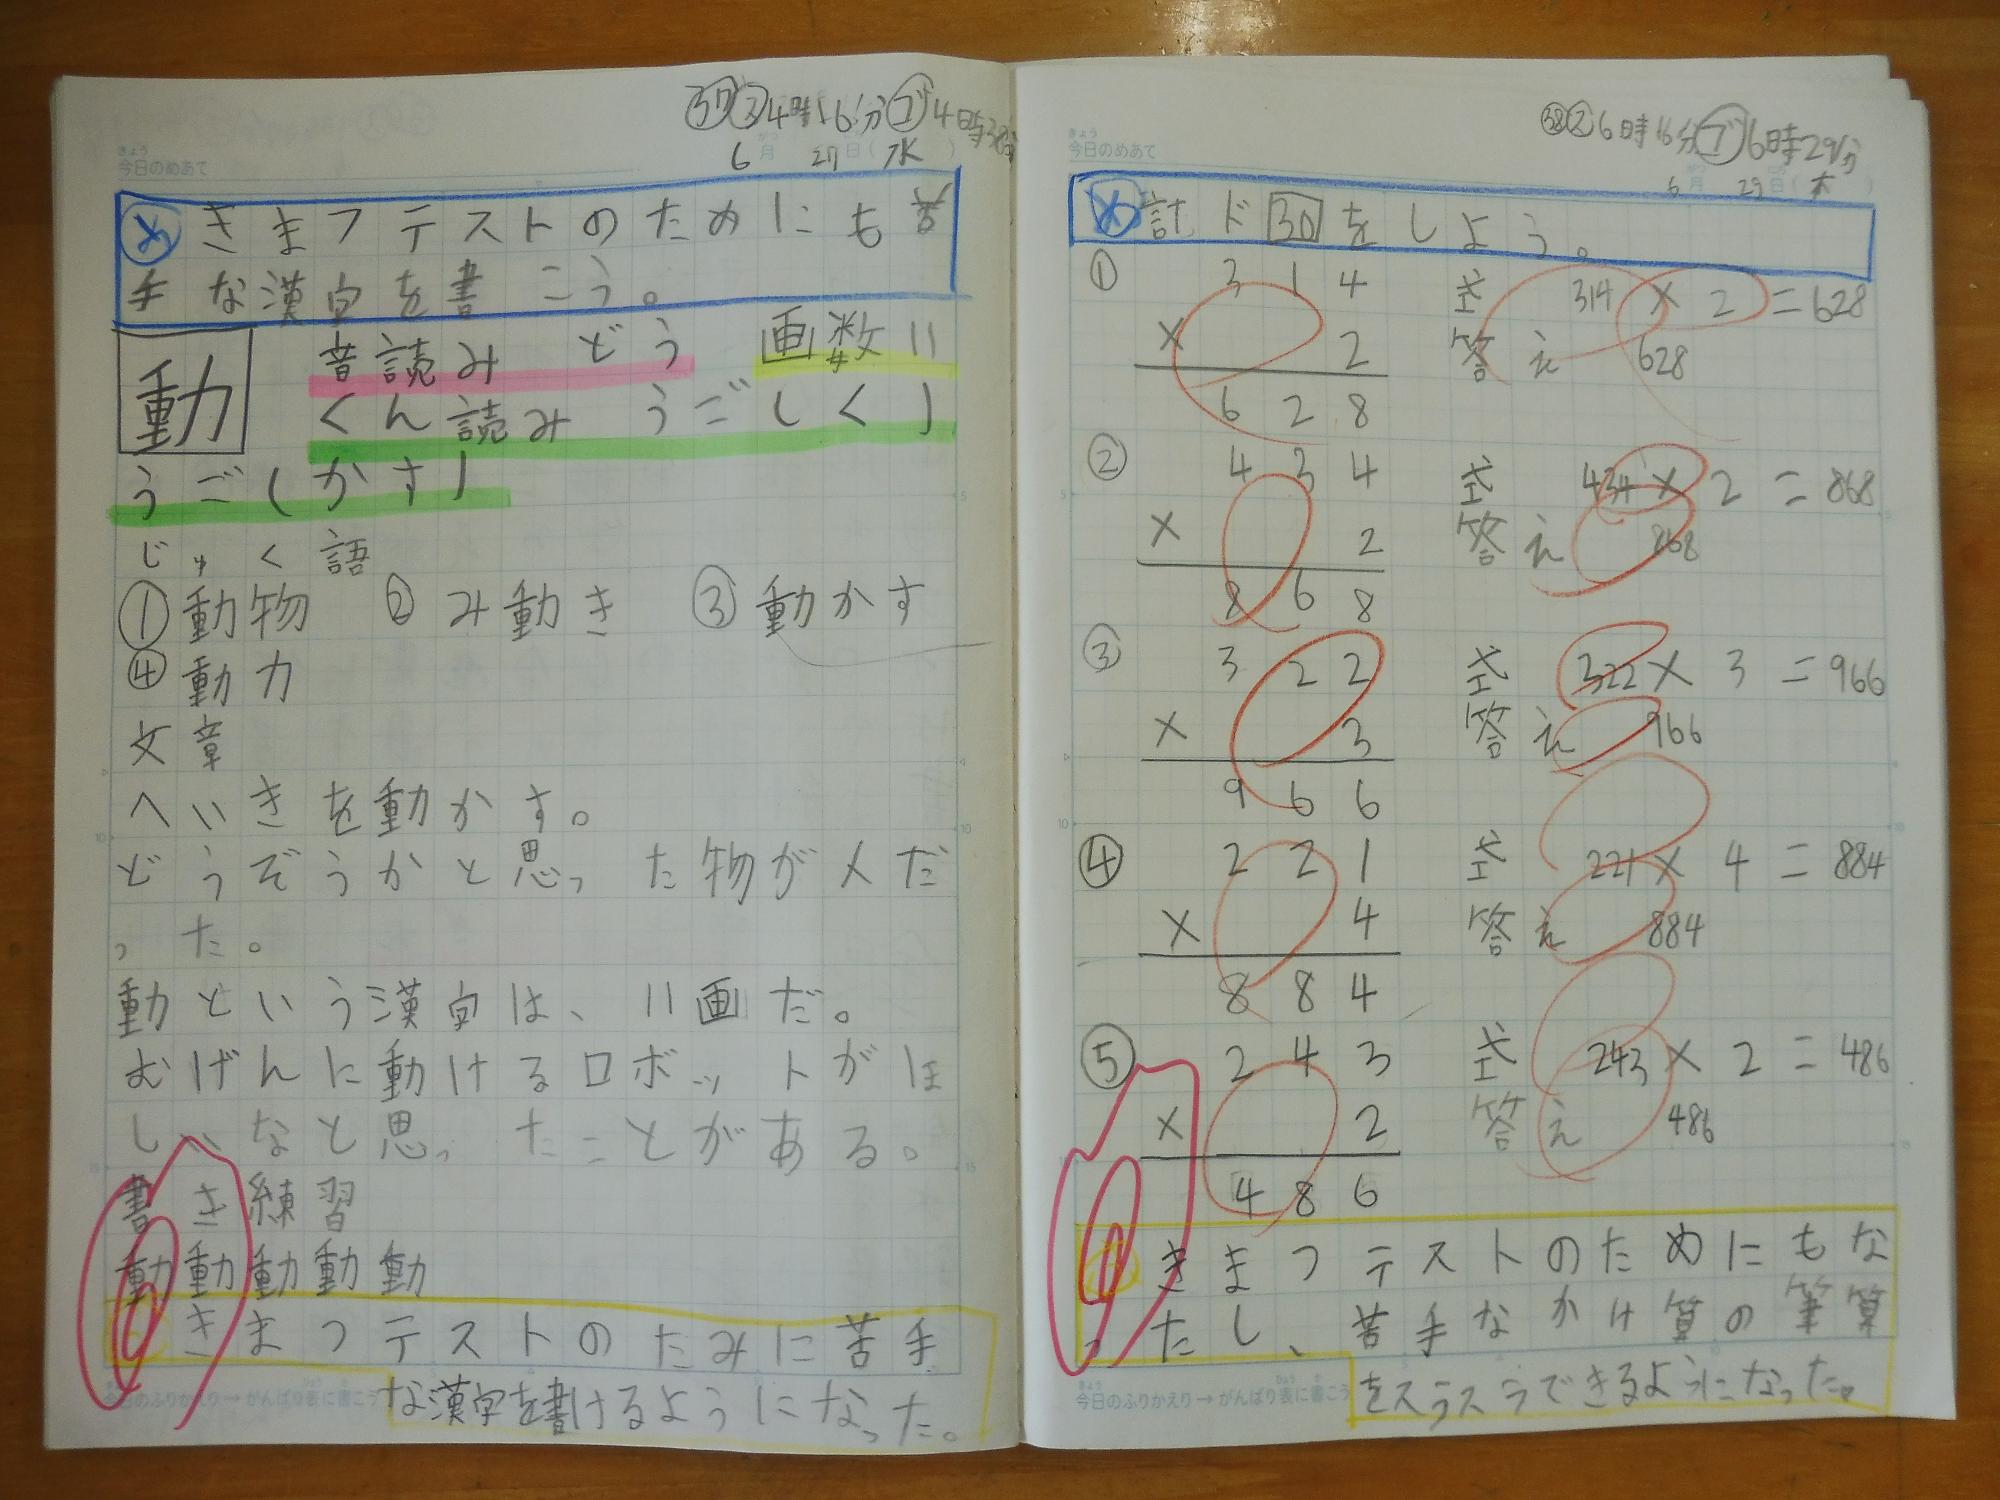 ㊲ス4時16分ゴ4時38分
きょう
今日のめあて
6月27日(水)
めきまつテストのためにも苦
手な漢字を書こう。
動 音読み どう 画数11
くん読み うご(く)
うご(かす)
じゅく語
①動物 ②み動き ③動かす
④動力
文章
へいきを動かす。
どうぞうかと思った物がメだ
った。
動という漢字は、11画だ。
むげんに動けるロボットがほ
しいなと思ったことがある。
書き練習
動動動動動
きまつテストのたみに苦手
今日のふりかえり→がんばり表に書こう
な漢字を書けるようになった。
㊳ス6時16分ゴ6時29分
きょう
今日のめあて
6月29日(木)
め計ド30をしよう。
① 314 式 314×2=628
× 2 答え 628
628
② 434 式 434×2=868
× 2 答え 868
868
③ 322 式 322×3=966
× 3 答え 966
966
④ 221 式 221×4=884
× 4 答え 884
884
⑤ 243 式 243×2=486
× 2 答え 486
486
きまつテストのためにもな
ったし、苦手なかけ算の筆算
きょう ひょう か
今日のふりかえり→がんばり表に書こう
をスラスラできるようになった。